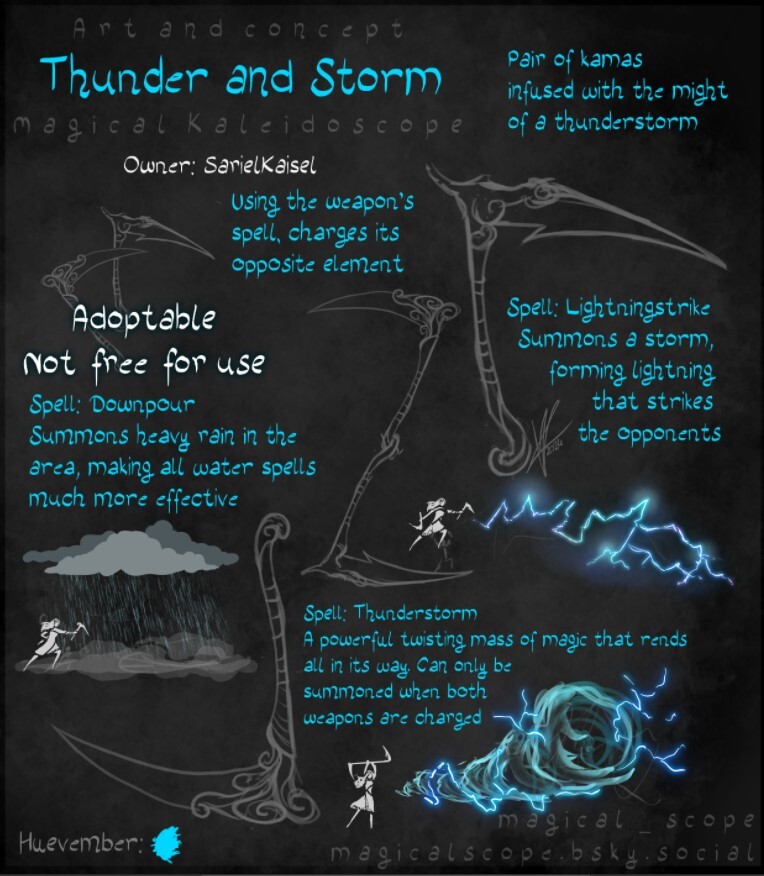 Art and concept
Thunder and Storm
magical Kaleidoscope
Pair of kamas
infused with the might
of a thunderstorm
Owner: SarielKaisel
Using the weapon's
spell, charges its
opposite element
Adoptable
Not free for use
Spell: Lightningstrike
Summons a storm,
forming lightning
that strikes
the opponents
Spell: Downpour
Summons heavy rain in the
area, making all water spells
much more effective
Spell: Thunderstorm
A powerful twisting mass of magic that rends
all in its way. Can only be
summoned when both
weapons are charged
Huevember:
magical_scope
magicalscope.bsky.social